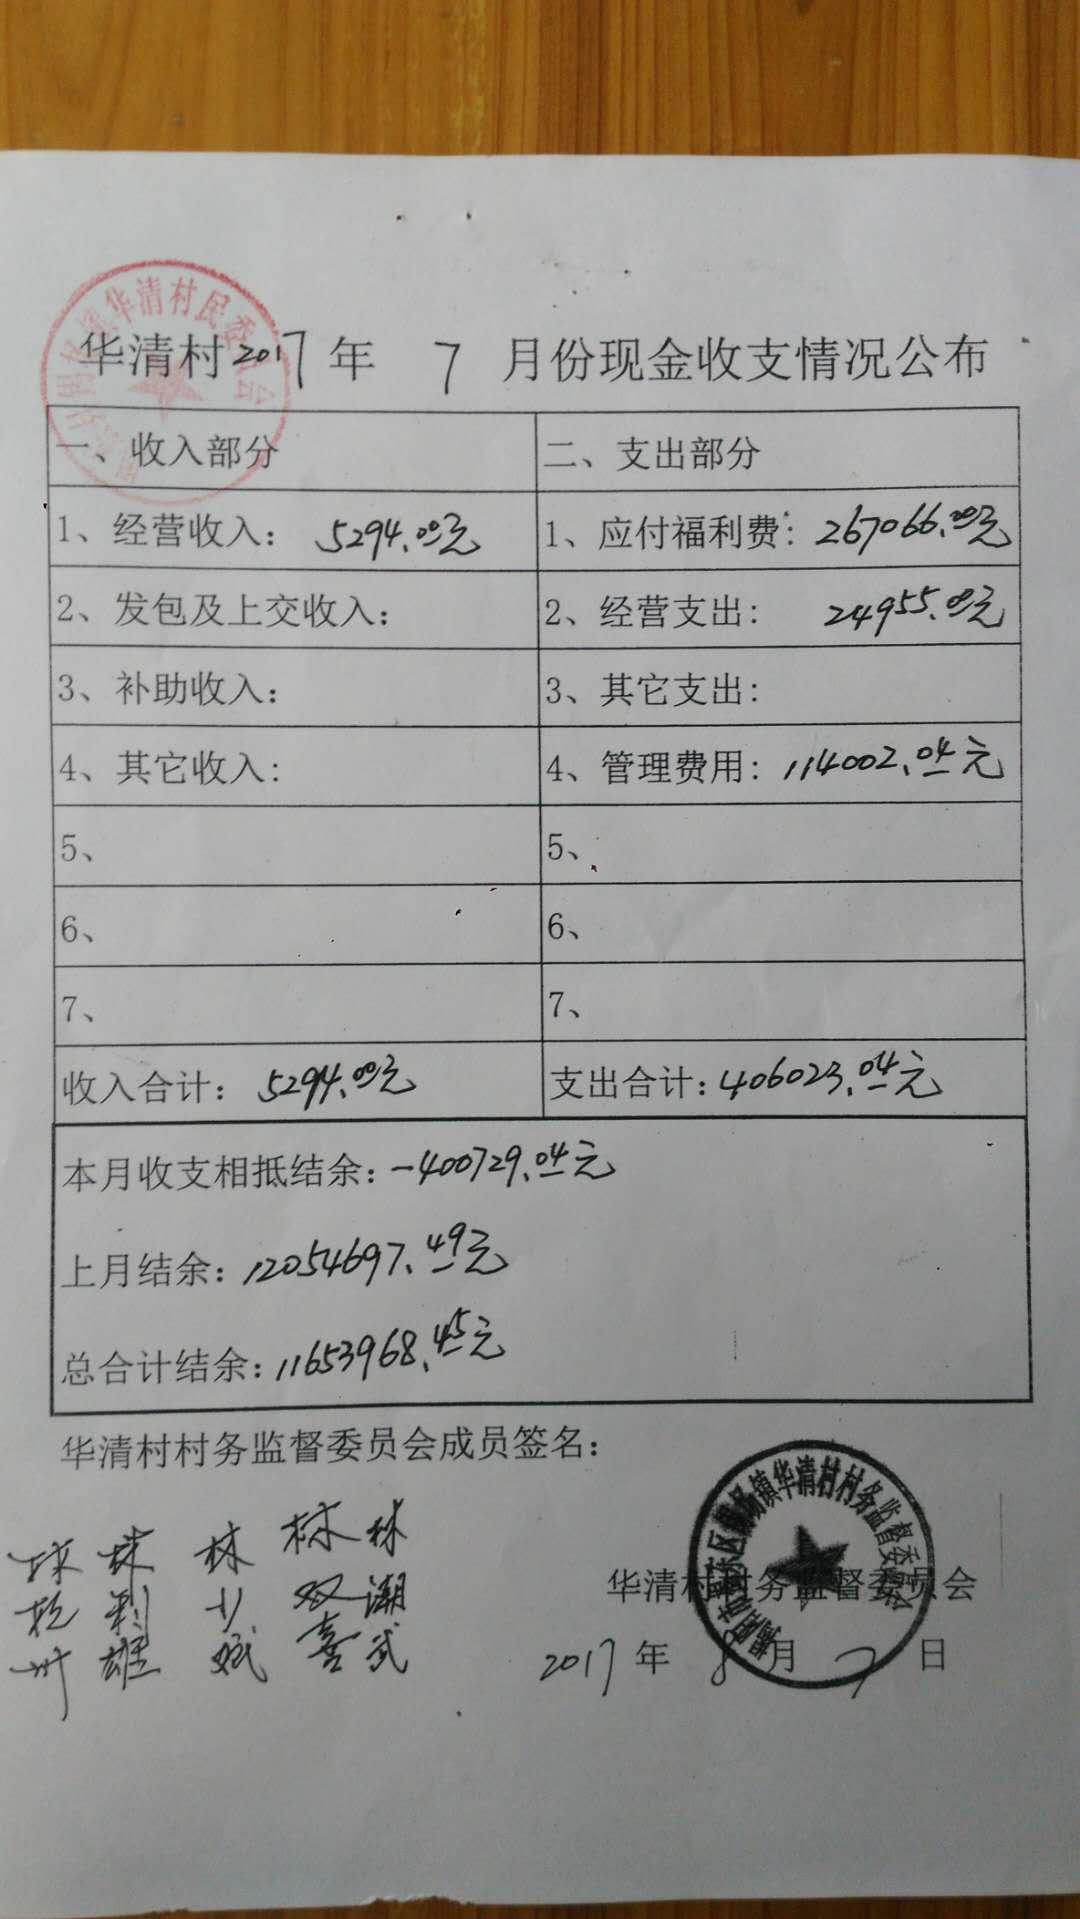 华清村2017年 7 月份现金收支情况公布
一、收入部分 二、支出部分
1、经营收入: 5294.00元 1、应付福利费: 267066.00元
2、发包及上交收入: 2、经营支出: 24955.00元
3、补助收入: 3、其它支出:
4、其它收入: 4、管理费用: 114002.04元
5、 5、
6、 6、
7、 7、
收入合计: 5294.00元 支出合计: 406023.04元
本月收支相抵结余: -400729.04元
上月结余: 12054697.49元
总合计结余: 11653968.45元
华清村村务监督委员会成员签名:
林 林 双喜
林 潮武
华清村村务监督委员会
2017年 8月 7日
镇华清村民委 会
镇华清村村务监督委员会